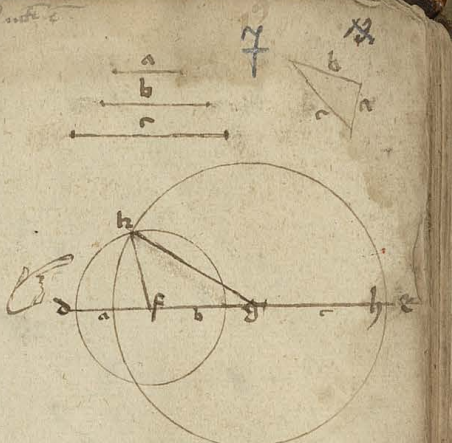 7
a
b
c
b
c
a
k
d a f b g c h e